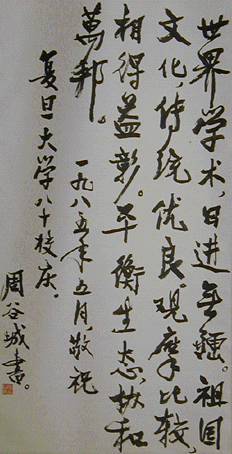 世界学术,日进无疆。祖国
文化,传统优良,观摩比较,
相得益彰。平衡生态,协和
萬邦。
一九八五年五月,敬祝
复旦大学八十校庆。
周谷城书。